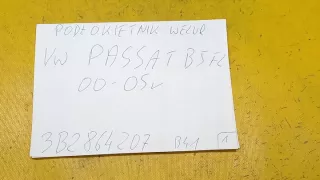 PODŁOKIETNIK WELUR
VW PASSAT B5FL
00-05r
3B2864207 B41 1